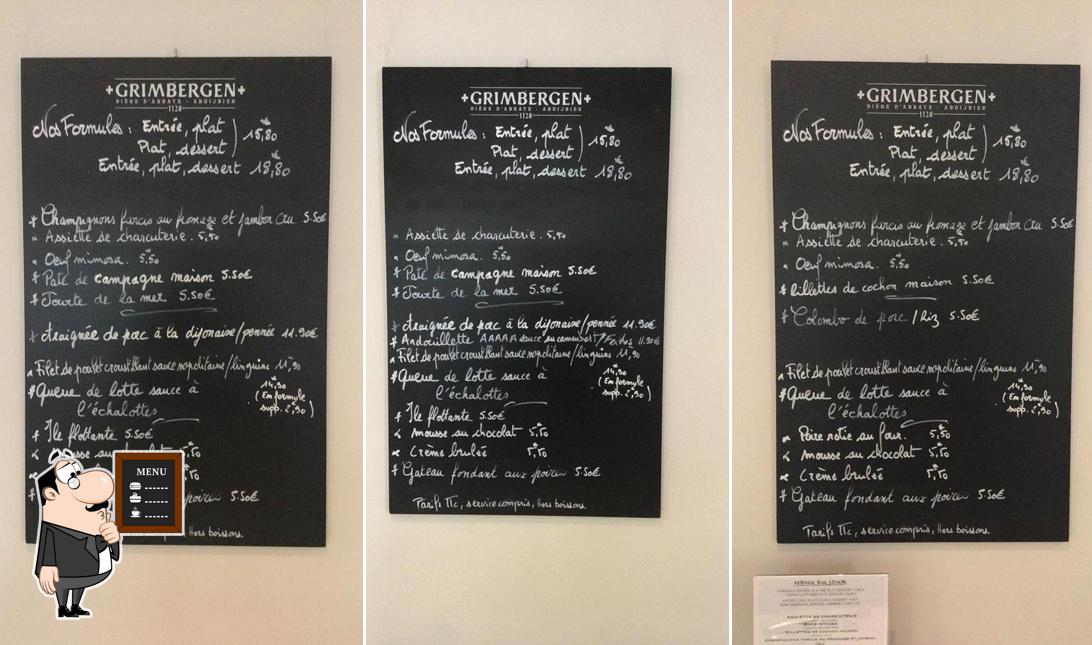 GRIMBERGEN
BIÈRE D'ABBAYE - ABDIJBIER
1128
Nos Formules : Entrée, plat
Plat, dessert
15,80
Entrée, plat, dessert 18,80
* Champignons farcis au fromage et jambon cru 5.50€
Assiette de charcuterie. 5,50
Oeuf mimosa. 5,50
* Paté de campagne maison 5.50€
* Tourte de la mer 5.50€
* Araignée de porc à la dijonaise/pennée 11.90€
Filet de poulet croustillant sauce napolitaine/linguine 11,90
* Queue de lotte sauce à
l'échalottes
14,90
(En formule
supp. 2,90)
* Ile flottante 5.50€
mousse au chocolat 5,50
5,50
poires 5.50€
Hors boissons.
MENU
GRIMBERGEN
BIÈRE D'ABBAYE - ABDIJBIER
1128
Nos Formules : Entrée, plat
Plat, dessert
15,80
Entrée, plat, dessert 18,80
Assiette de charcuterie. 5,50
Oeuf mimosa. 5,50
* Paté de campagne maison 5.50€
* Tourte de la mer 5.50€
* Araignée de porc à la dijonaise/pennée 11.90€
* Andouillette AAAAA sauce au camembert / 11.90€
Filet de poulet croustillant sauce napolitaine/linguine 11,90
* Queue de lotte sauce à
l'échalottes
14,90
(En formule
supp. 2,90)
* Ile flottante 5.50€
mousse au chocolat 5,50
Crème brulée 5,50
* Gateau fondant aux poires 5.50€
Tarifs TTc, service compris, Hors boissons.
GRIMBERGEN
BIÈRE D'ABBAYE - ABDIJBIER
1128
Nos Formules : Entrée, plat
Plat, dessert
15,80
Entrée, plat, dessert 18,80
* Champignons farcis au fromage et jambon cru 5.50€
Assiette de charcuterie. 5,50
Oeuf mimosa. 5,50
* Rillettes de cochon maison 5.50€
* Colombo de porc / Riz 5.50€
Filet de poulet croustillant sauce napolitaine/linguine 11,90
* Queue de lotte sauce à
l'échalottes
14,90
(En formule
supp. 2,90)
Poire rotie au four. 5,50
mousse au chocolat 5,50
Crème brulée 5,50
* Gateau fondant aux poires 5.50€
Tarifs TTc, service compris, Hors boissons.
MENU DU JOUR
ASSIETTE DE CHARCUTERIE
RILLETTES DE COCHON MAISON
CHAMPIGNONS FARCIS AU FROMAGE ET JAMBON